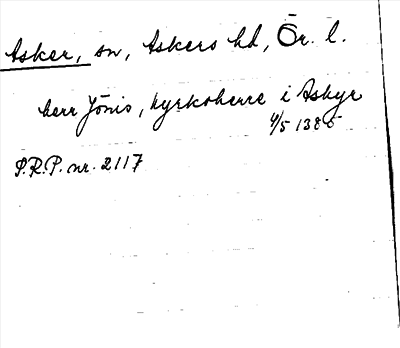 Asker, sn, Askers hd, Ör. l.
herr Jönis, kyrkoherre i Askyr
4/5 1385
S.R.P. nr. 2117